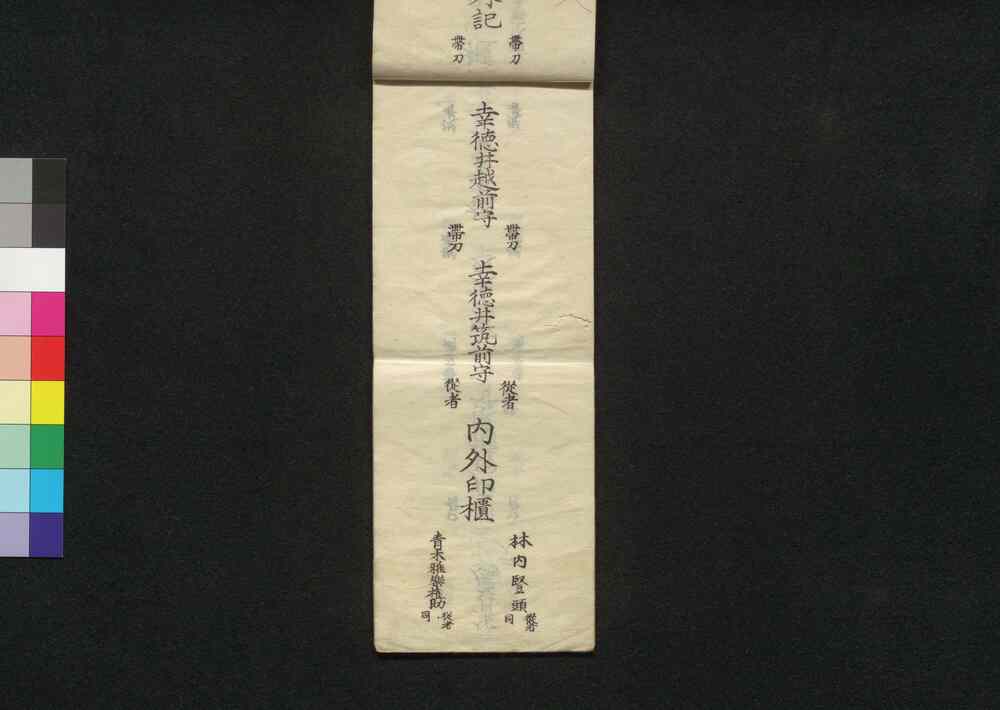 記
帶刀
帶刀
幸德井越前守
帶刀
帶刀
幸德井筑前守
從者
從者
内外印櫃
林内豎頭
從者
同
青木雅樂權助
從者
同